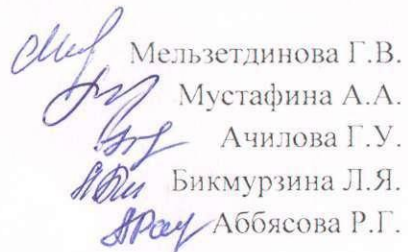 Мельзетдинова Г.В.
Мустафина А.А.
Ачилова Г.У.
Бикмурзина Л.Я.
Аббясова Р.Г.